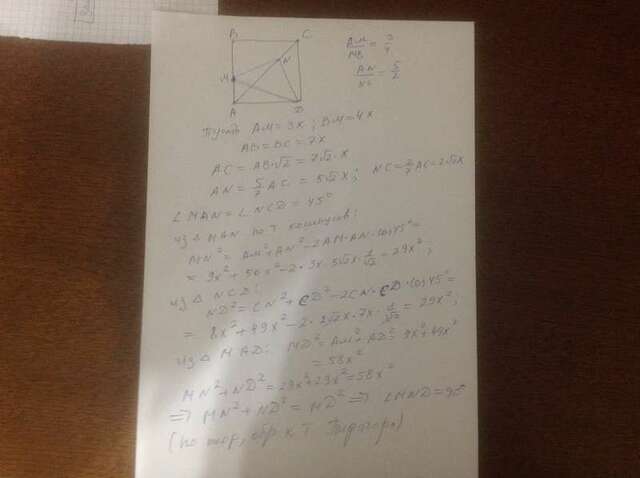 B C
AM/MB = 3/4
N
M
AN/NC = 5/2
A D
Пусть AM = 3x ; BM = 4x
AB = BC = 7x
AC = AB·√2 = 7√2·x
AN = 5/7 AC = 5√2x; NC = 2/7 AC = 2√2x
∠MAN = ∠NCD = 45°
из △MAN по т. косинусов:
MN² = AM² + AN² - 2AM·AN·cos45° =
= 9x² + 50x² - 2·3x·5√2x·1/√2 = 29x²;
из △NCD:
ND² = CN² + CD² - 2CN·CD·cos45° =
= 8x² + 49x² - 2·2√2x·7x·1/√2 = 29x²;
из △MAD: MD² = AM² + AD² = 9x² + 49x²
= 58x²
MN² + ND² = 29x² + 29x² = 58x²
=> MN² + ND² = MD² => ∠MND = 90
(по теор, обр к т. Пифагора)